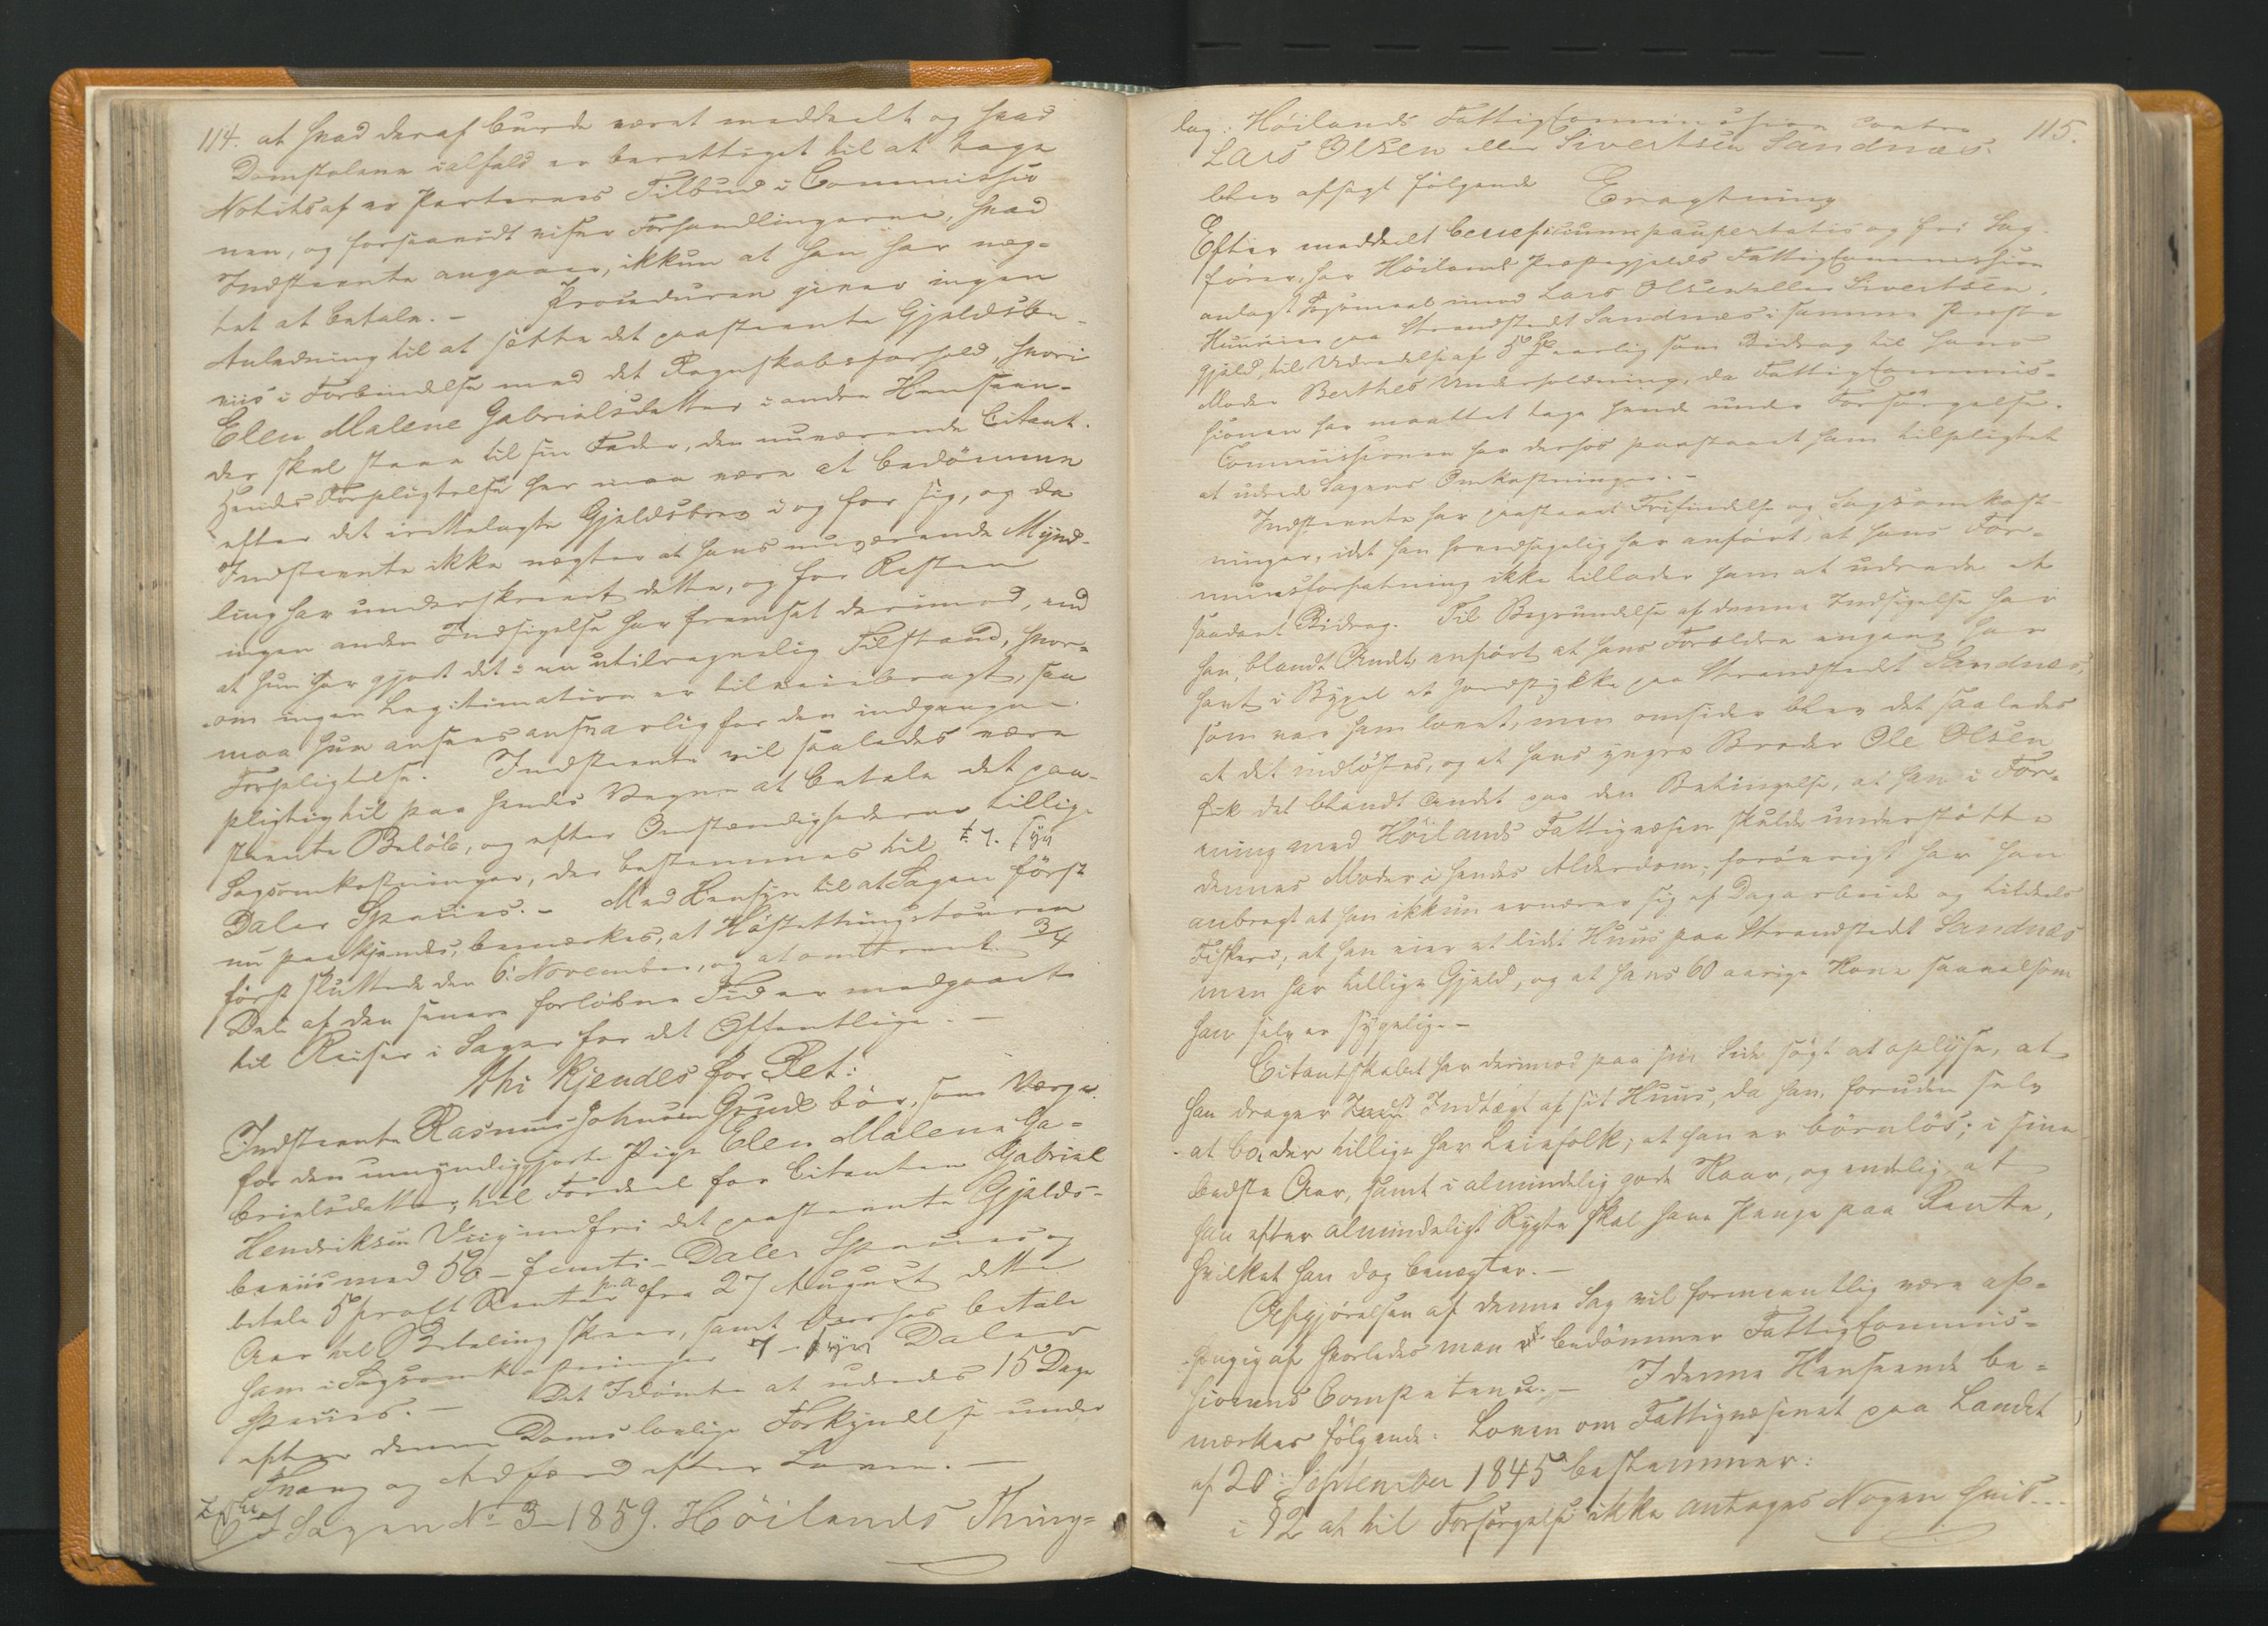 114. at hvad deraf burde været meddeelt og hvad
Domstolene ialfald er berettiget til at tage
Notits af er Parternes Tilbud i Commissio
nen, og forsaavidt viser Forhandlingerne, hvad
Indstevnte angaaer, ikkun at han har næg-
tet at betale. - Proceduren giver ingen
Anledning til at sætte det paastevnte Gjeldsbe-
viis i Forbindelse med det Regnskabsforhold, hvori
Elen Malene Gabrielsdatter i anden Henseen-
der skal staae til sin Fader, den nuværende Citant.
Hendes Forpligtelse her maa være at bedömme
efter det irettelagte Gjeldsbrev i og for sig, og da
Indstevnte ikke negter at hans nuværende Mynd-
ling har underskrevet dette, og for Resten
ingen anden Indsigelse har fremsat derimod, end
at hun har gjort det i en utilregnelig Tilstand, hvor-
om ingen Legitimation er tilveiebragt, saa
maa hun ansees ansvarlig for den indgangne
Forpligtelse. Indstevnte vil saaledes være
pligtig til paa hendes Vegne at betale det paa-
stevnte Belöb, og efter Omstændighederne tillige
Sagsomkostninger, der bestemmes til 7. syv
Daler Species. - Med Hensyn til at Sagen först
nu paakjendes, bemærkes, at Höstethingstouren
först sluttede den 6. November, og at omtrent 3/4
Dele af den senere forløbne Tid er medgaaet
til Reiser i Sager for det Offentlige. -
Thi Kjendes for Ret:
Indstevnte Rasmus Johnsen Grude bör, som Værge
for den umyndiggjorte Pige Elen Malene Ga-
brielsdatter, til Fordeel for Citanten Gabriel
Hendriksen Viig indfri det paastevnte Gjelds-
beviis med 50 - femti - Daler Species og
betale 5 procent Renter p. a. fra 27 August dette
Aar til Betaling skeer, samt derhos betale
ham i Sagsomkostninger 7 - syv Daler
Species. - Det Idömte at udredes 15 Dage
efter denne Doms lovlige Forkyndelse under
Tvang og Adfærd efter Loven. -
I Sagen No 3 - 1859. Höilands Thing-
115.
lag: Höilands FattigCommission contra
Lars Olsen eller Sivertsen Sandnæs.
blev afsagt følgende Eragtning
Efter meddeelt beneficium paupertatis og fri Sag-
fører, har Höiland Præstegjelds FattigCommission
anlagt Sögsmaal imod Lars Olsen eller Sivertsen,
Huseier paa Strandstedt Sandnæs i samme Præste
gjeld, til Udredelse af 5 Spd aarlig som Bidrag til hans
Moder Berthes Underholdning, da FattigCommis-
sionen har maattet tage hende under Forsörgelse.
Commissionen har derhos paastaaet ham tilpligtet
at udrede Sagens Omkostninger. -
Indstevnte har paastaaet Frifindelse og Sagsomkost-
ninger, idet han hovedsagelig har anfört, at hans For-
muesforfatning ikke tillader ham at udrede et
saadant Bidrag. Til Begrundelse af denne Indsigelse har
han, blandt Andet, anfört at hans Forældre engang har
havt i Byxel et Jordstykke paa Strandstedt Sandnæs,
som var ham lovet, men omsider blev det saaledes
at det indlöstes, og at hans yngre Broder Ole Olsen
fik det blandt Andet paa den Betingelse, at han i For-
ening med Höilands Fattigvæsen skulde understötte
dennes Moder i hendes Alderdom; forövrigt har han
anbragt at han ikkun ernærer sig af Dagarbeide og tildeels
Fiskeri, at han eier et lidet Huus paa Strandstedt Sandnæs
men har tillige Gjeld, og at hans 60 aarige Kone saavelsom
han selv er sygelig. -
Citantskabet har derimod paa sin Side sögt at oplyse, at
han drager Indtægt af sit Huus, da han, foruden selv
at bo der tillige har Leiefolk; at han er börnlös; i sine
bedste Aar, samt i almindelig gode Kaar, og endelig at
han efter almindeligt Rygte skal have Penge paa Rente,
hvilket han dog benegter. -
Afgjörelsen af denne Sag vil formeentlig være af-
hengig af hvorledes man bedömmer FattigCommis-
sionens Competence. - I denne Henseende be-
mærkes fölgende: Loven om Fattigvæsenet paa Landet
af 20 September 1845 bestemmer:
i § 2 at til Forsörgelse ikke antages Nogen hvis...